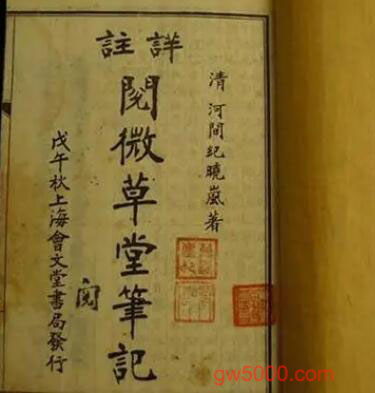 清 河間紀曉嵐著
詳註
閱微草堂筆記
戊午秋上海會文堂書局發行
閱
gw5000.com